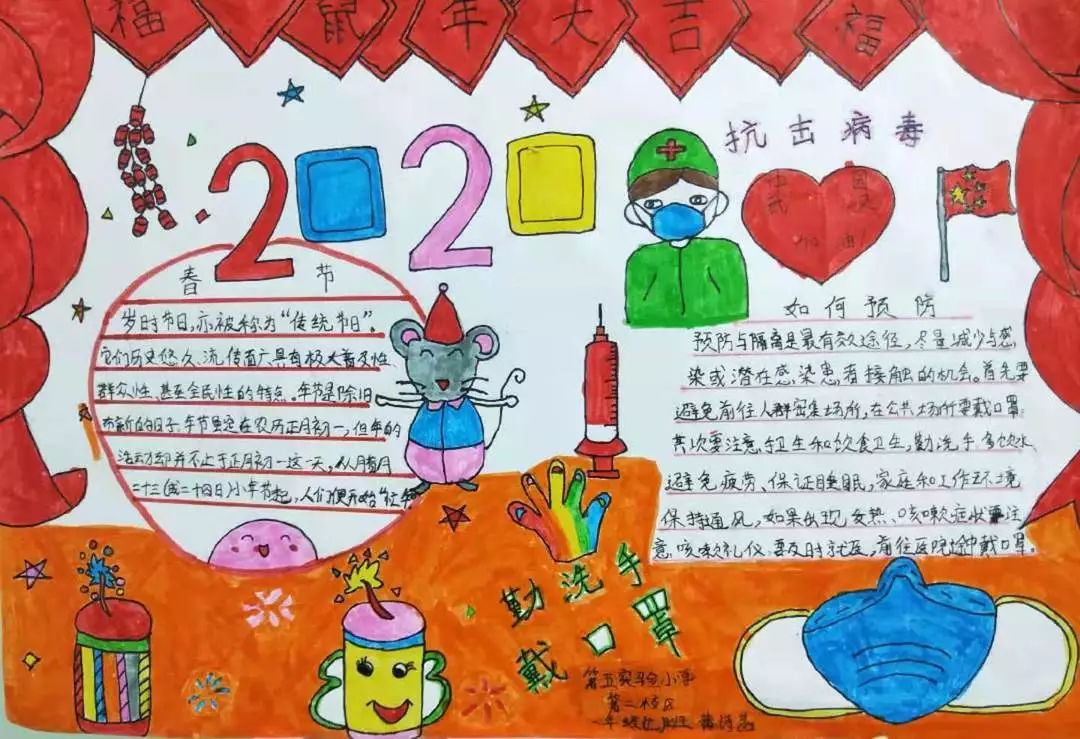 福鼠年大吉福
2020
抗击病毒
中国
武汉
加油!
春节
岁时节日,亦被称为“传统节日”。
它们历史悠久、流传面广具有极大普及性、
群众性、甚至全民性的特点。年节是除旧
布新的日子。年节虽定在农历正月初一,但年的
活动却并不止于正月初一这一天,从腊月
二十三(或二十四日)小年节起,人们便开始“忙年
如何预防
预防与隔离是最有效途径,尽量减少与感
染或潜在感染患者接触的机会。首先要
避免前往人群密集场所,在公共场所要戴口罩
其次要注意手卫生和饮食卫生,勤洗手多饮水
避免疲劳、保证睡眠,家庭和工作环境
保持通风,如果出现发热、咳嗽症状要注
意咳嗽礼仪,要及时就医,前往医院途中戴口罩。
勤洗手
戴口罩
第五实验小学
第二校区
一年级